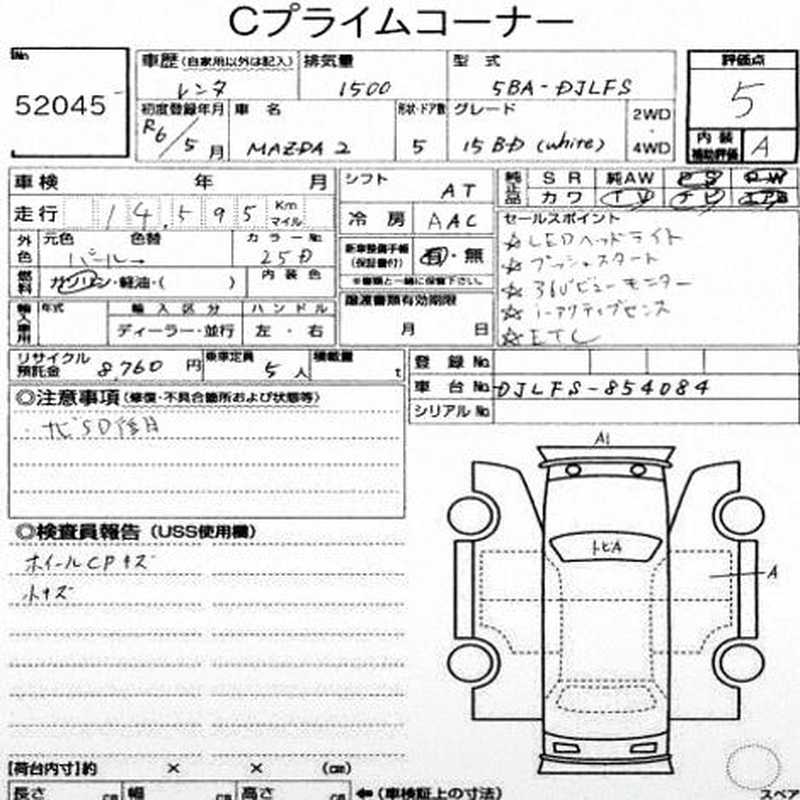 Cプライムコーナー
No.
52045
車歴(自家用以外は記入)
レンタ
排気量
1500
型 式
5BA-DJLFS
評価点
5
初度登録年月
R6/5月
車 名
MAZDA 2
形状・ドア数
5
グレード
15 BD (white)
2WD
・
4WD
内 装
補助評価
A
車検 年 月
走行 14,595 Km
マイル
外色
元色 色替
パール
カラーNo.
25D
燃料
ガソリン・軽油・( )
内装色
輸入車用
年式
輸入区分
ディーラー・並行
ハンドル
左・右
シフト
AT
冷 房
AAC
新車整備手帳
(保証書付)
有・無
※書類と一緒に保管下さい。
譲渡書類有効期限
月 日
純正品
SR 純AW PS PW
カワ TV ナビ エアB
セールスポイント
☆LEDヘッドライト
☆プッシュスタート
☆360ビューモニター
☆i-アクティブセンス
☆ETC
リサイクル
預託金
8,760 円
乗車定員
5人
積載量
t
登 録 No.
車 台 No. DJLFS-854084
シリアル No.
◎注意事項(修復・不具合箇所および状態等)
・ナビSD後日
◎検査員報告(USS使用欄)
ホイールCPキズ
小キズ
A1
トビA
A
【荷台内寸】約 × × (cm)
長さ cm 幅 cm 高さ cm ←(車検証上の寸法)
スペア